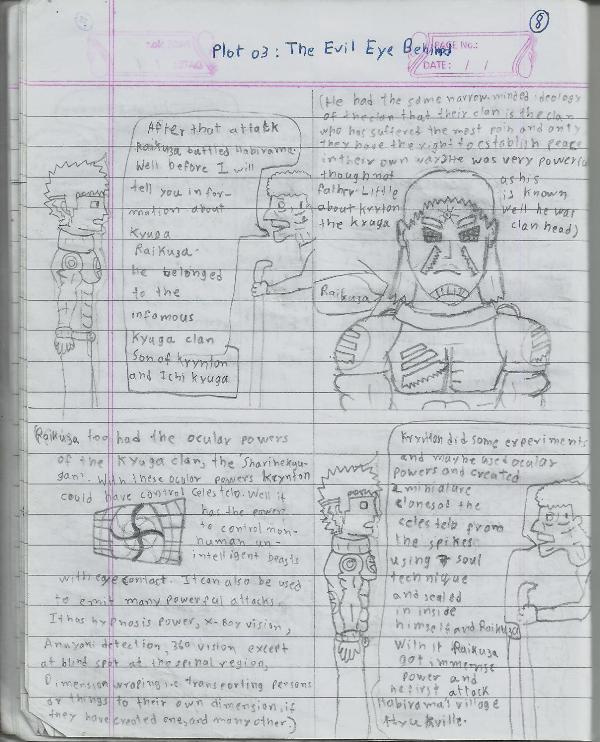 8
Plot 03: The Evil Eye Behind
PAGE No.:
DATE: / /
After that attack
Raikuza battled Habirama.
Well before I will
tell you infor-
mation about
Kyuga
Raikuza.
he belonged
to the
infamous
Kyuga clan
Son of Krynton
and Ichi Kyuga
(He had the same narrow-minded ideology
of the clan that their clan is the clan
who has suffered the most pain and only
they have the right to establish peace
in their own way. He was very powerful
though not as his
father. Little is known
about Krynton well he was
the Kyuga clan head)
Raikuza
Raikuza too had the ocular powers
of the Kyuga clan, the 'Sharinekyu-
gan'. With these ocular powers Krynton
could have control Celestelo. Well it
has the power
to control non-
human un-
intelligent beasts
with eye contact. It can also be used
to emit many powerful attacks.
It has hypnosis power, X-Ray vision,
detection, 360 vision except
at blind spot at the spinal region,
Dimension wraping i.e transporting persons
or things to their own dimension, if
they have created one, and many other.)
Krynton did some experiments
and maybe used ocular
powers and created
2 miniature
clones of the
celestelo from
the spikes
using soul
technique
and sealed
in inside
himself and Raikuza
With it Raikuza
got immense
power and
he first attack
Habirama's village